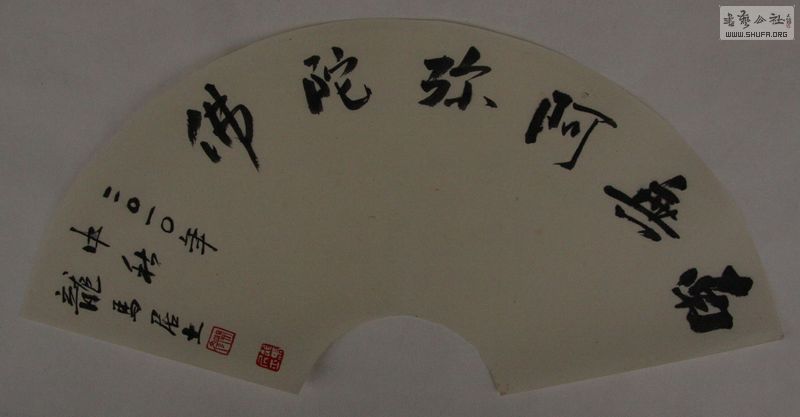 南無阿弥陀佛
二〇一〇年
中秋
龍馬居士
書藝公社
WWW.SHUFA.ORG